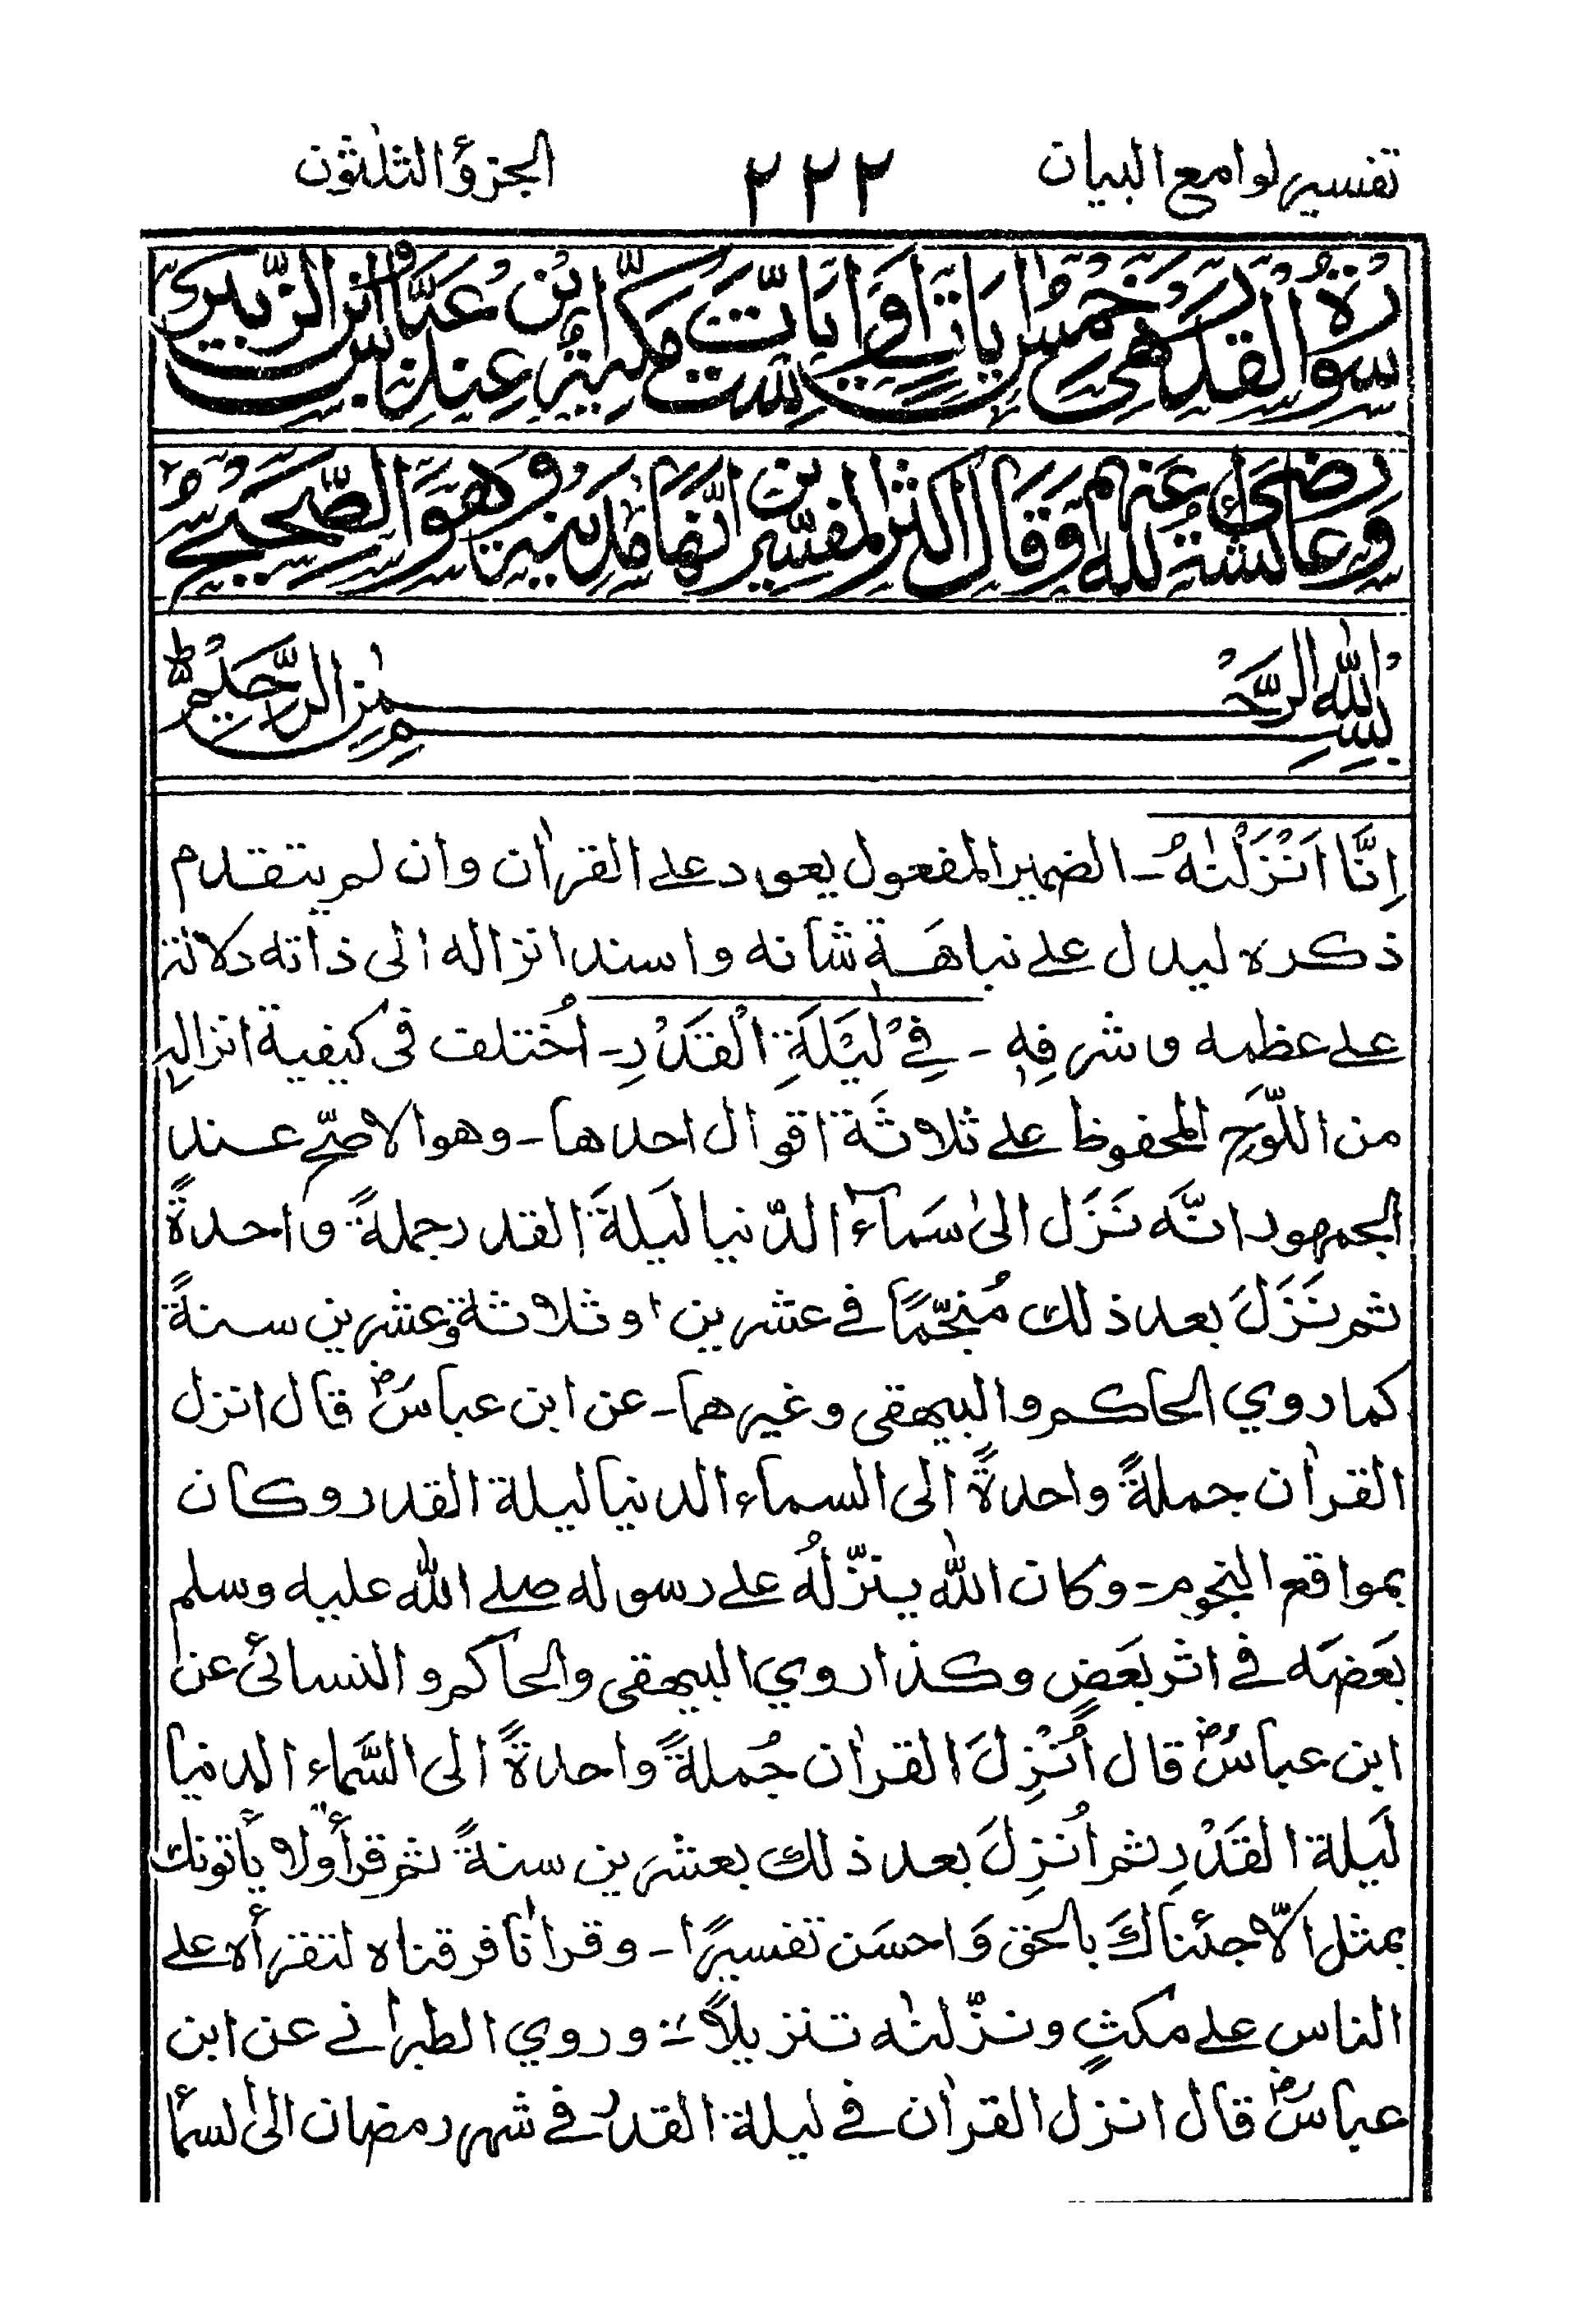 تفسير لوامع البيان ٢٢٢ الجزؤ الثلثون
سورة القدر هي خمس اٰيات او ست اٰيات مكية عند ابن عباس وابن الزبير
وعائشة رضي الله عنهم وقال اكثر المفسرين انها مدنية وهو الصحيح
بسم الله الرحمٰن الرحيم ط
اِنَّا اَنْزَلْنٰهُ - الضمير المفعول يعود على القراٰن وان لم يتقدم
ذكره ليدل على نباهَة شأنه واسند انزاله الى ذاته دلالة
على عظمه وشرفِهٖ - فِيْ لَيْلَةِ الْقَدْرِ - اُختلف فى كيفية انزالهٖ
من اللّوَحِ المحفوظ على ثلاثَة اقوال احدها - وهو الاصحّ عند
الجمهور انَّه نَزَل الىٰ سَمآء الدّنيا لَيلةَ القدر جملةً واحدةً
ثم نَزَلَ بعد ذلك مُنجّمًا في عشرين او ثلاثة وعشرين سنةً
كما روي الحاكم والبيهقى وغيرهما - عن ابن عباسؓ قال انزل
القراٰن جملةً واحدةً الى السماء الدنيا ليلة القدر وكان
بمواقع النجوم - وكان الله ينزّلُهُ على رسوله صلى الله عليه وسلم
بَعضَه في اثر بَعَضٍ وكذا روي البيهقى والحاكم والنسائى عن
ابن عباسؓ قال اُنْزِلَ القراٰن جُملةً واحدةً الى السَّماء الدنيا
لَيلة القَدْرِ ثم اُنْزِلَ بعد ذلك بعشرين سنةً ثم قرأ ولا يأتونك
بمثل الّا جئناكَ بالحق وَاحسَن تفسيرًا - وقراٰنا فرقناه لتقرأه على
الناس على مكثٍ ونزّلنٰه تنزيلاً :: وروي الطبراني عن ابن
عباسؓ قال انزل القراٰن في ليلة القدرُ في شهر رمضان الىٰ لسمأ